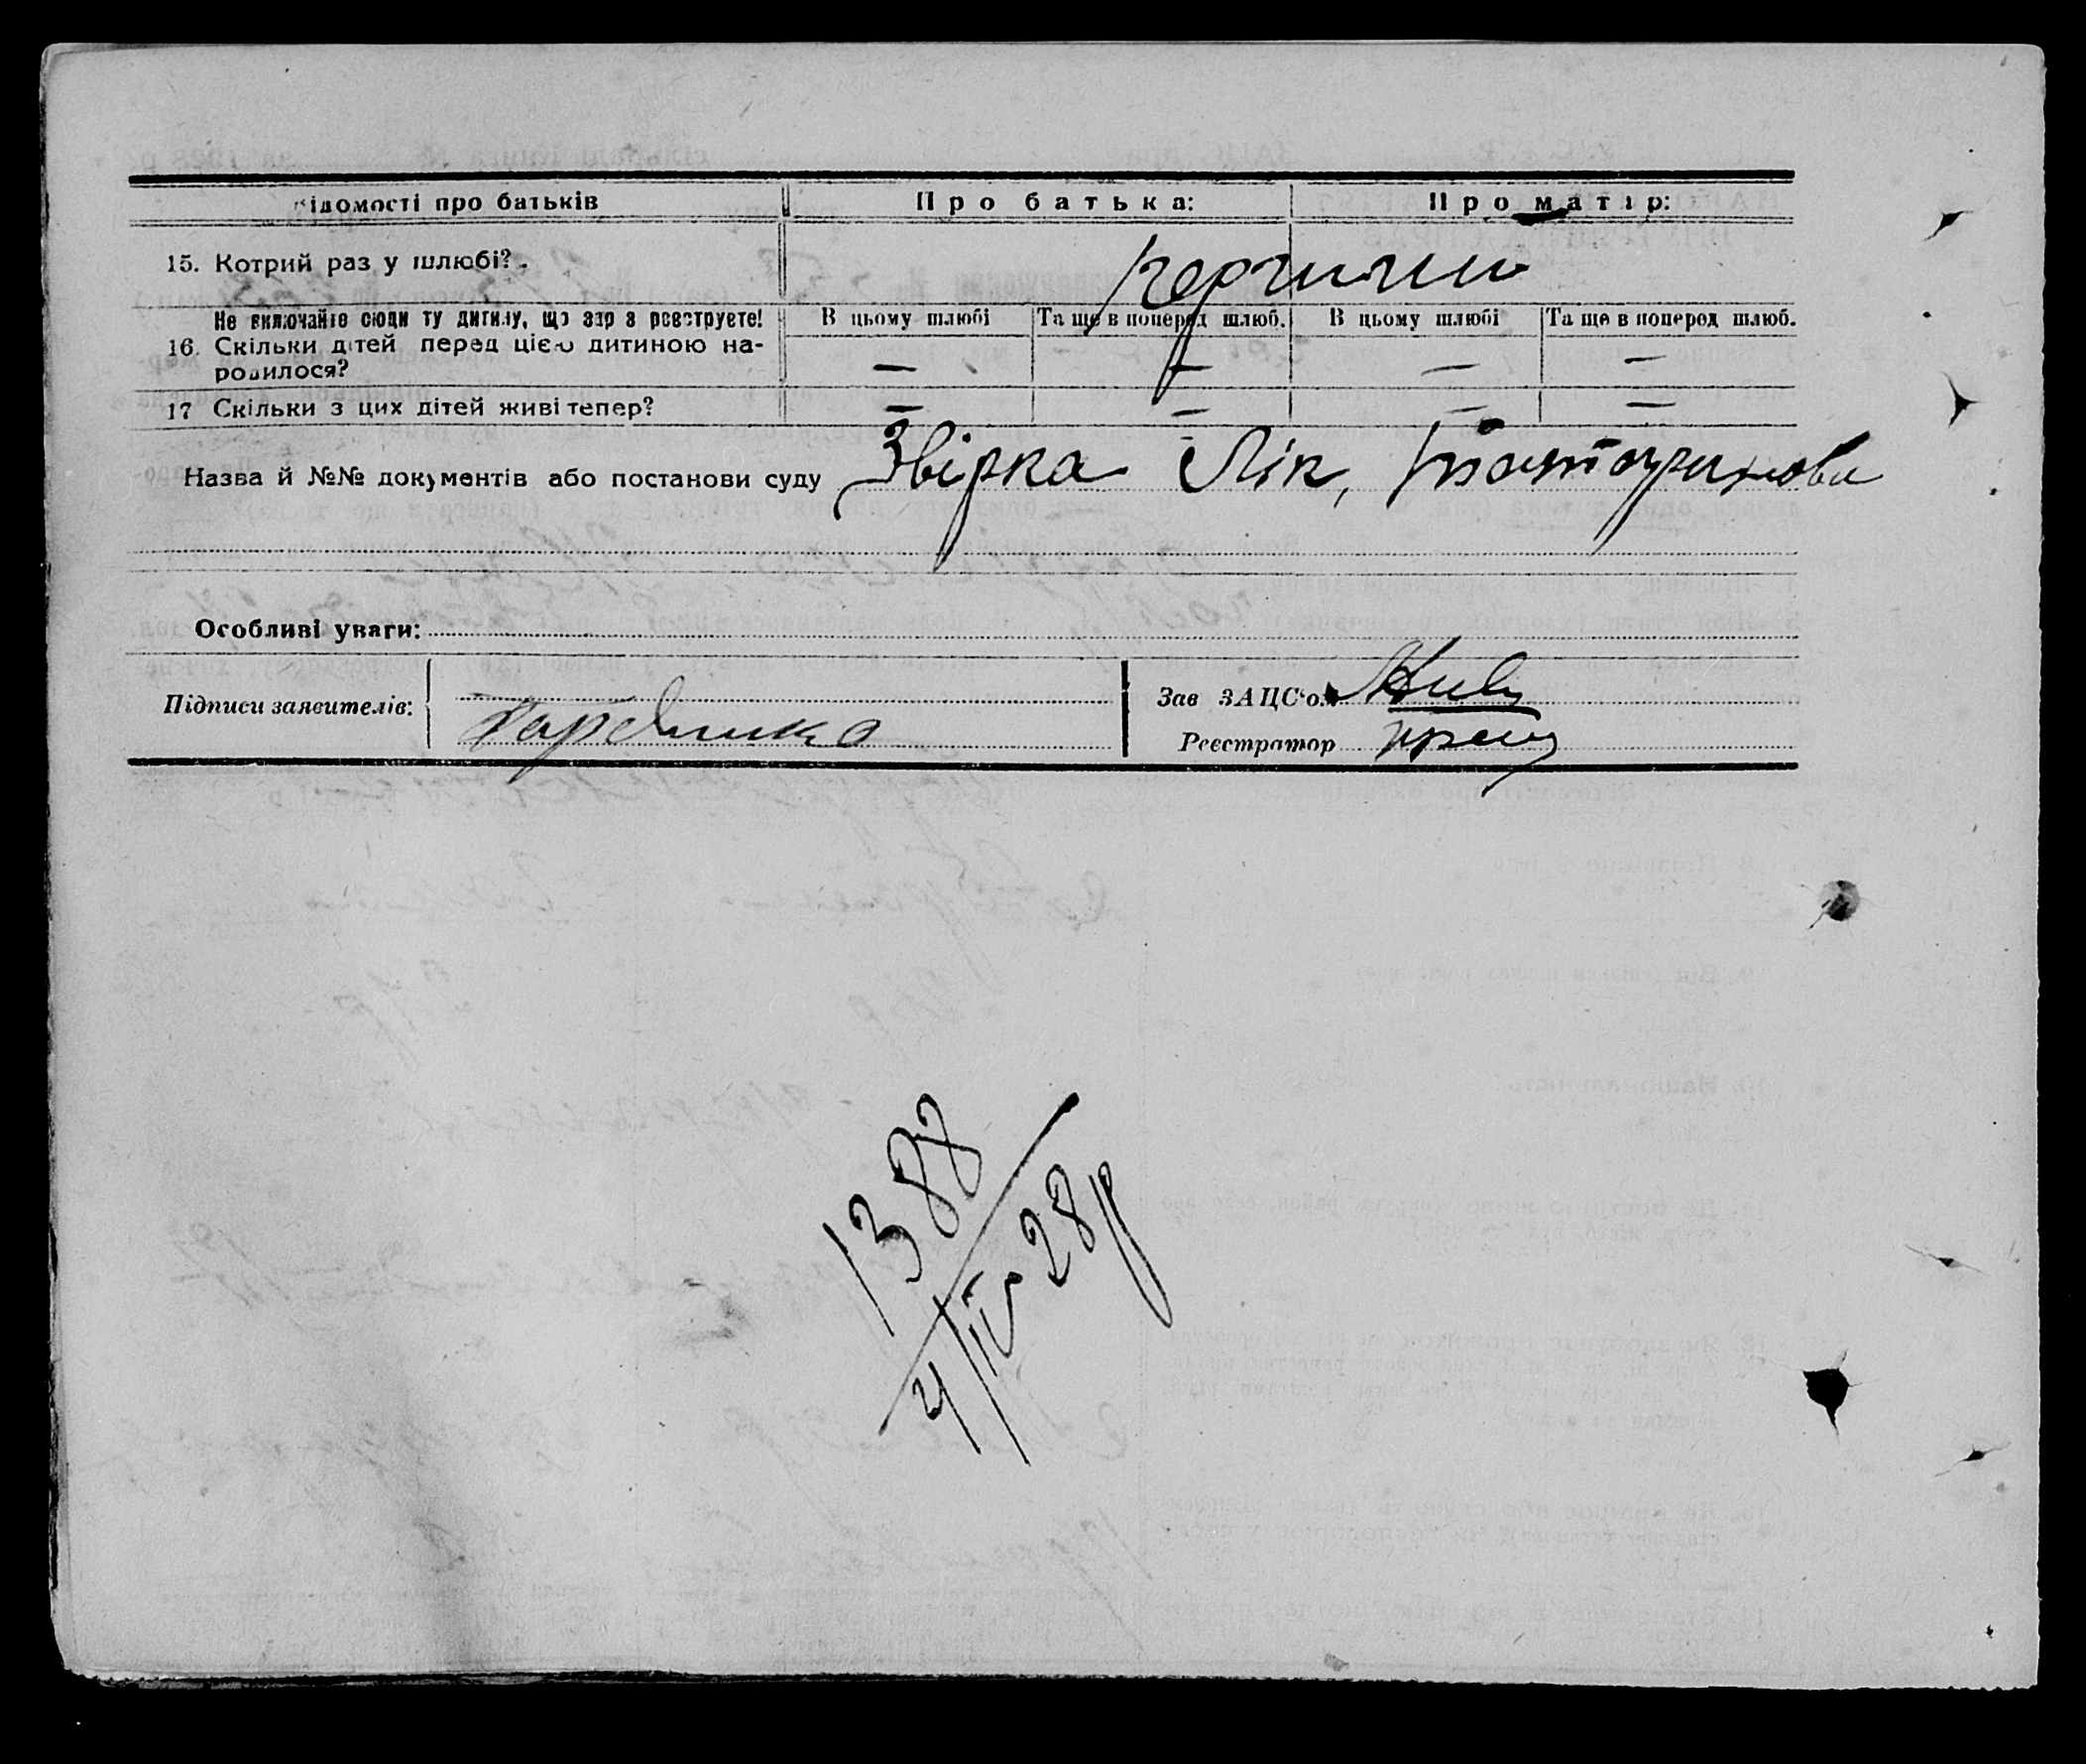 Відомості про батьків
Про батька:
Про матір:
15. Котрий раз у шлюбі?
Не включайте сюди ту дитину, що зар з реєструєте!
16. Скільки дітей перед цією дитиною на-
родилося?
В цьому шлюбі
Та ще в поперед шлюб.
В цьому шлюбі
Та ще в поперед шлюб.
— — — —
17 Скільки з цих дітей живі тепер?
— — — —
Назва й №№ документів або постанови суду Звірка Лік,
Особливі уваги:
Підписи заявителів:
Зав ЗАЦС'ом
Реєстратор
1388
4/IV 28р